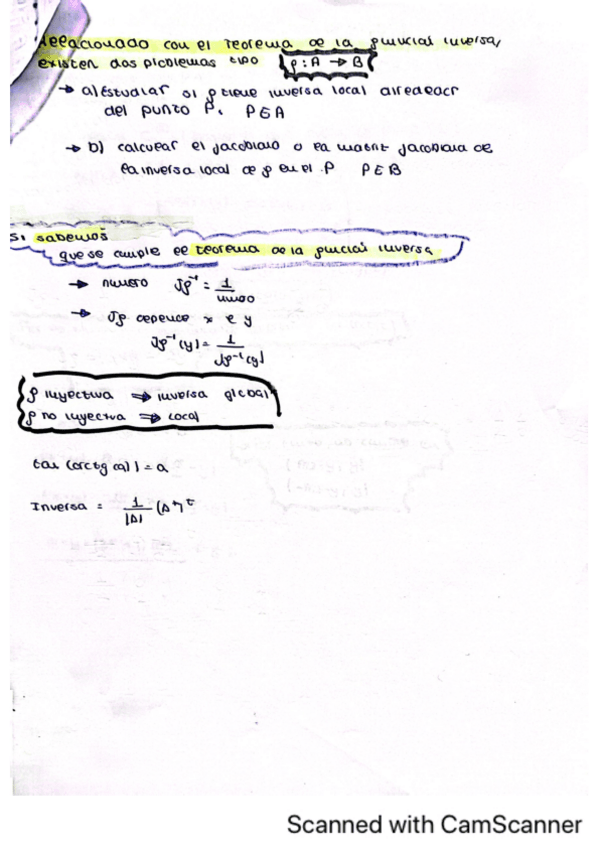 Relacionado con el Teorema de la función inversa,
existen dos problemas tipo f: A → B
→ a) Estudiar si f tiene inversa local alrededor
del punto P. P∈A
→ b) calcular el jacobiano o la matriz jacobiana de
la inversa local de f en el P P∈B
Si sabemos
que se cumple el teorema de la función inversa
→ número Jf⁻¹ = 1/
→ Jf depende x e y
Jf⁻¹(y) = 1/Jf⁻¹(y)
f inyectiva ⇒ inversa global
f no inyectiva ⇒ local
tan (arctg a) = a
Inversa = 1/|A| (A
Scanned with CamScanner